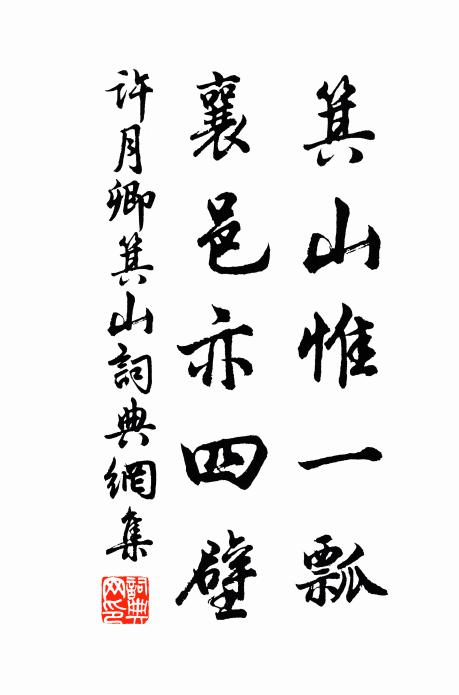 箕山惟一瓢
襄邑亦四壁
許月卿箕山詞典網集
詞典網印